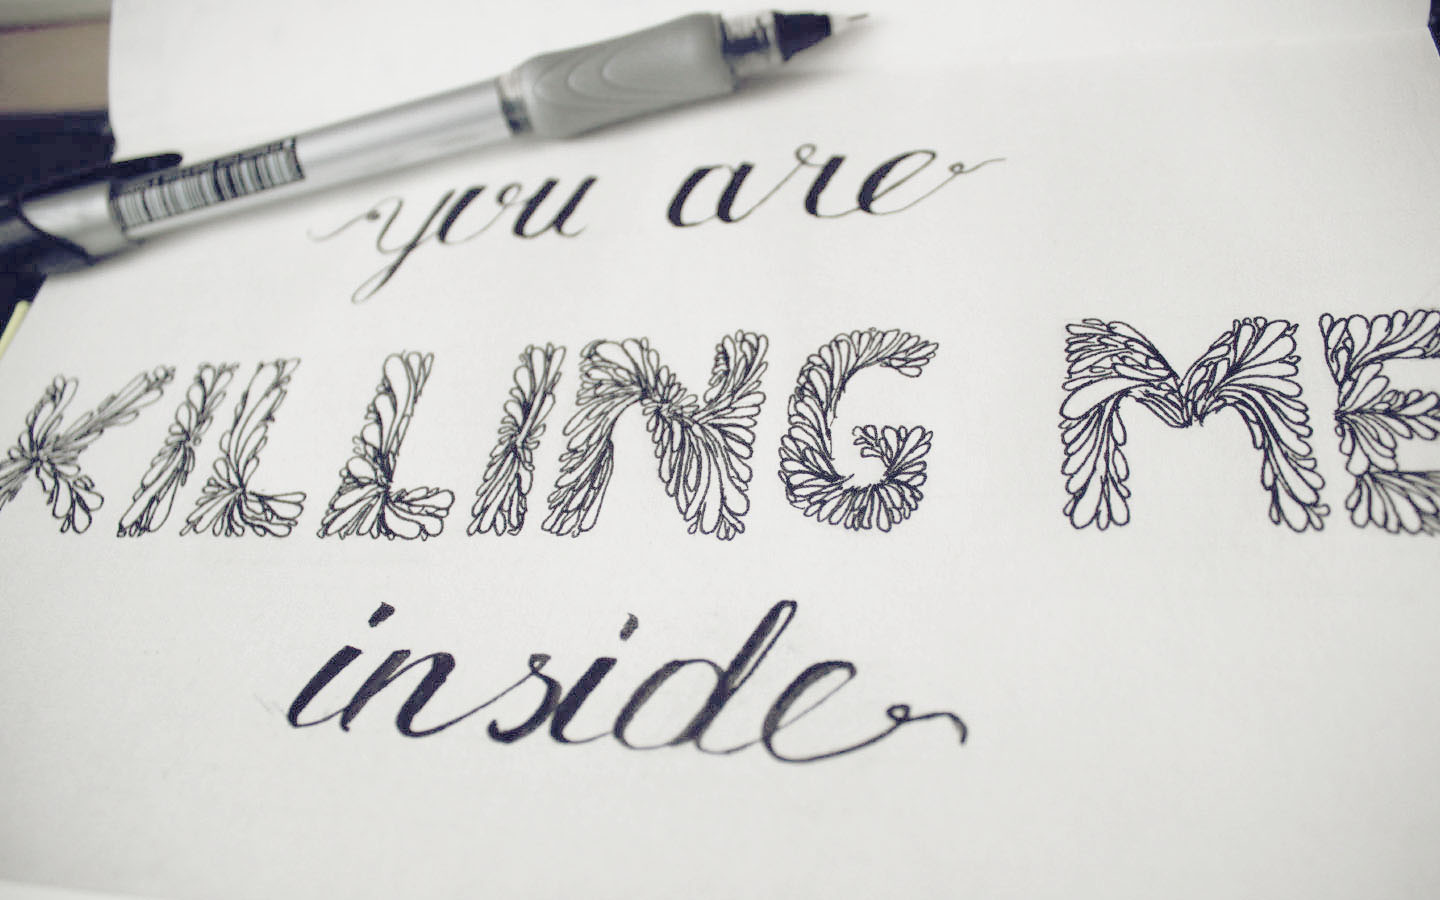 you are
KILLING ME
inside